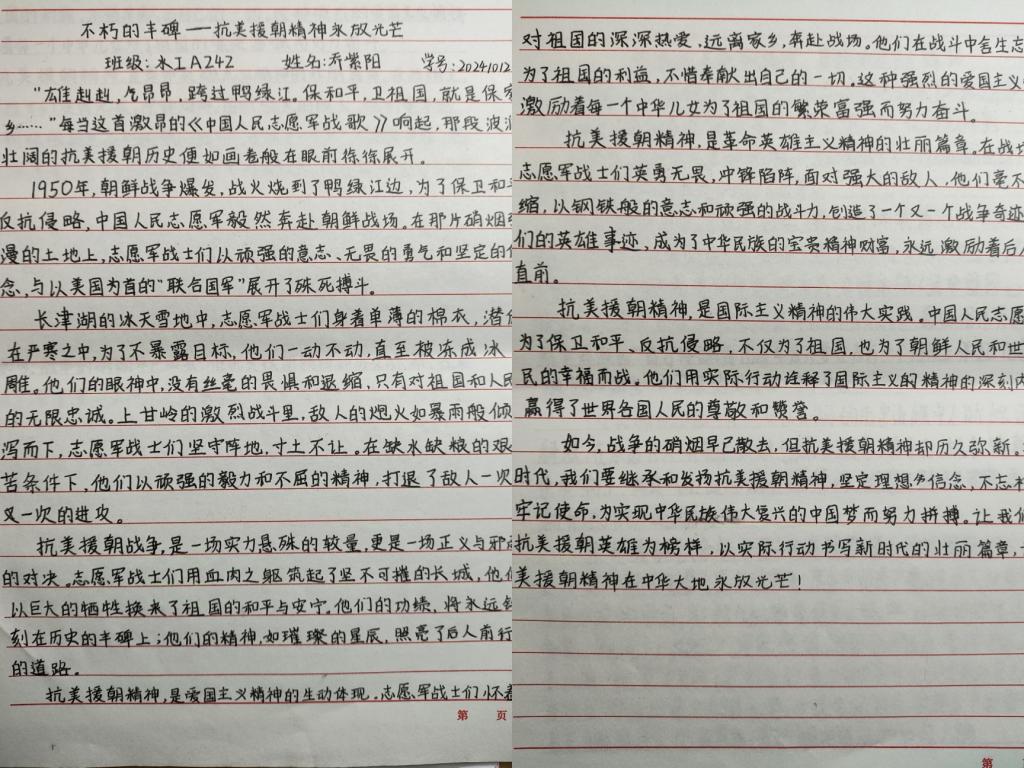 不朽的丰碑——抗美援朝精神永放光芒
班级:水工A242 姓名:乔紫阳 学号:20241012
"雄赳赳,气昂昂,跨过鸭绿江。保和平,卫祖国,就是保家
乡……"每当这首激昂的《中国人民志愿军战歌》响起,那段波澜
壮阔的抗美援朝历史便如画卷般在眼前徐徐展开。
1950年,朝鲜战争爆发,战火烧到了鸭绿江边,为了保卫和平
反抗侵略,中国人民志愿军毅然奔赴朝鲜战场。在那片硝烟弥
漫的土地上,志愿军战士们以顽强的意志、无畏的勇气和坚定的信
念,与以美国为首的"联合国军"展开了殊死搏斗。
长津湖的冰天雪地中,志愿军战士们身着单薄的棉衣,潜伏
在严寒之中,为了不暴露目标,他们一动不动,直至被冻成冰
雕。他们的眼神中,没有丝毫的畏惧和退缩,只有对祖国和人民
的无限忠诚。上甘岭的激烈战斗里,敌人的炮火如暴雨般倾
泻而下,志愿军战士们坚守阵地,寸土不让。在缺水缺粮的艰
苦条件下,他们以顽强的毅力和不屈的精神,打退了敌人一次
又一次的进攻。
抗美援朝战争,是一场实力悬殊的较量,更是一场正义与邪恶
的对决。志愿军战士们用血肉之躯筑起了坚不可摧的长城,他们
以巨大的牺牲换来了祖国的和平与安宁。他们的功绩,将永远铭
刻在历史的丰碑上;他们的精神,如璀璨的星辰,照亮了后人前行
的道路。
抗美援朝精神,是爱国主义精神的生动体现。志愿军战士们怀着
第 页
对祖国的深深热爱,远离家乡,奔赴战场。他们在战斗中舍生忘
为了祖国的利益,不惜奉献出自己的一切。这种强烈的爱国主义
激励着每一个中华儿女为了祖国的繁荣富强而努力奋斗。
抗美援朝精神,是革命英雄主义精神的壮丽篇章。在战场
志愿军战士们英勇无畏,冲锋陷阵,面对强大的敌人,他们毫不
缩,以钢铁般的意志和顽强的战斗力,创造了一个又一个战争奇迹
们的英雄事迹,成为了中华民族的宝贵精神财富,永远激励着后人
直前。
抗美援朝精神,是国际主义精神的伟大实践。中国人民志愿
为了保卫和平、反抗侵略,不仅为了祖国,也为了朝鲜人民和世
民的幸福而战。他们用实际行动诠释了国际主义的精神的深刻内
赢得了世界各国人民的尊敬和赞誉。
如今,战争的硝烟早已散去,但抗美援朝精神却历久弥新。
时代,我们要继承和发扬抗美援朝精神,坚定理想与信念,不忘初
牢记使命,为实现中华民族伟大复兴的中国梦而努力拼搏。让我们
抗美援朝英雄为榜样,以实际行动书写新时代的壮丽篇章,
美援朝精神在中华大地永放光芒!
第